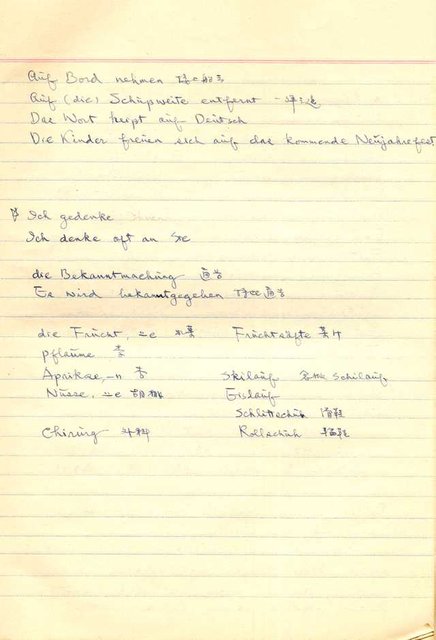 Auf Bord nehmen
Auf (die) Schußweite entfernt
Das Wort heißt auf Deutsch
Die Kinder freuen sich auf das kommende Neujahrsfest
Ich gedenke Ihrer
Ich denke oft an Sie
die Bekanntmachung 通告
Es wird bekanntgegeben 通告
die Frucht, ⸚e 水菓 Fruchtsäfte 菓汁
Pflaume 李
Aprikose, -n 杏 Skilauf Schilauf
Nüsse, ⸚e 胡桃 Eislauf
Schlittschuh 滑鞋
Chirurg 外科 Rollschuh